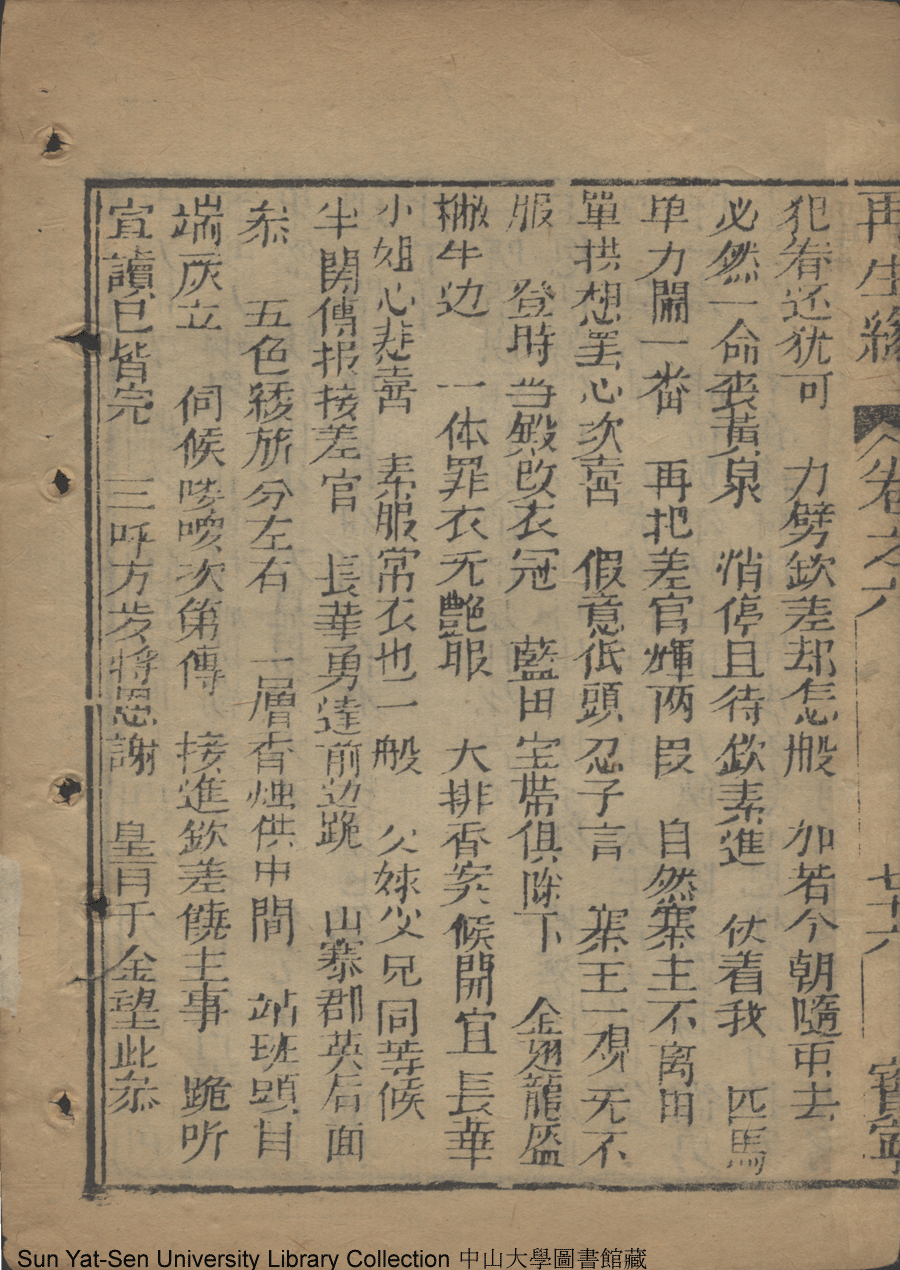 再生緣 卷之六 七十六
犯眷还犹可 力劈欽差却怎般 加若今朝隨東去
必然一命丧黃泉 悄停且待欽素進 仗着我 匹馬
单力闹一番 再把差官輝两段 自然寨主不离田
單拱想罢心次喜 假意低頭忍子言 寨王一視无不
服 登時当殿改衣冠 藍田宝帶俱除下 金翅龍盔
撇牛边 一体罪衣无艷服 大排香案候開宜 長華
小姐心悲喜 素服常衣也一般 父妹父兄同等候
半闋傳报接差官 長華勇達前边跪 山寨郡英后面
叅 五色綾旂分左右 一層香烟供中間 站班頭目
端灰立 伺候唛喚次第傳 接進欽差饒主事 跪听
宣讀已皆完 三呼方步將恩謝 皇音千金望此叅
Sun Yat-Sen University Library Collection 中山大學圖書館藏